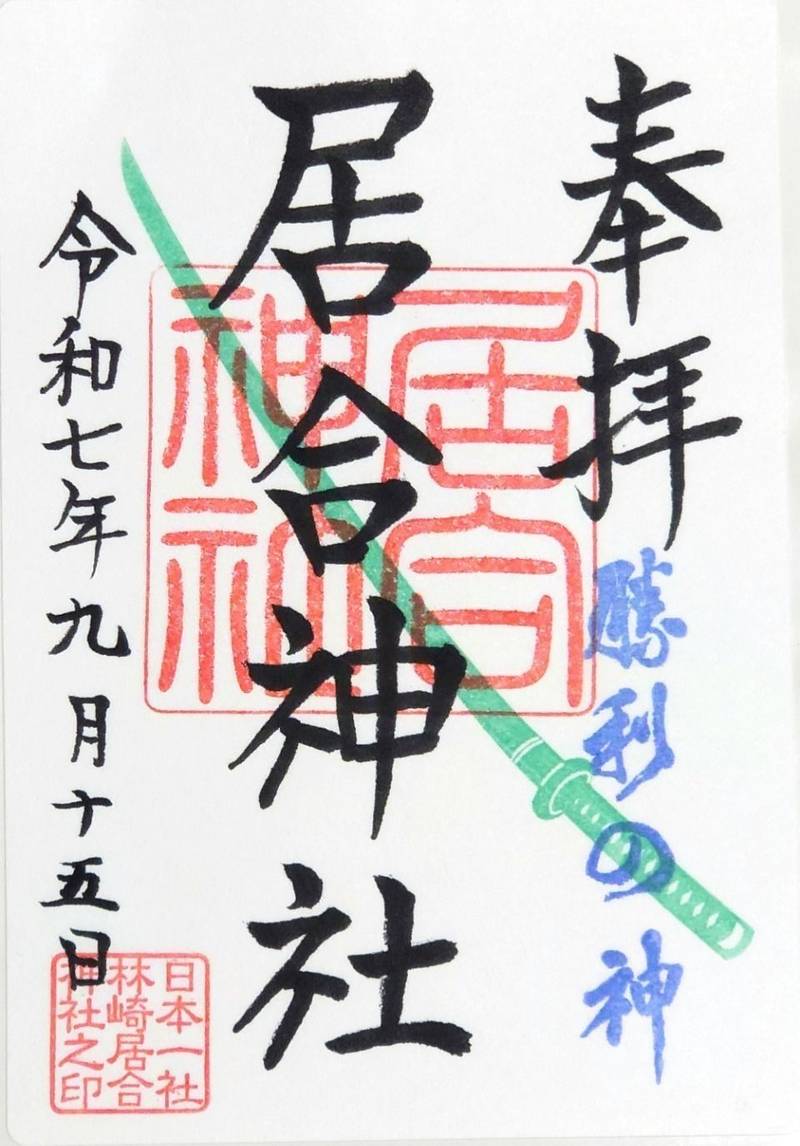 奉拝
勝利の神
居合神社
居合
神社
令和七年九月十五日
日本一社
林崎居合
神社之印